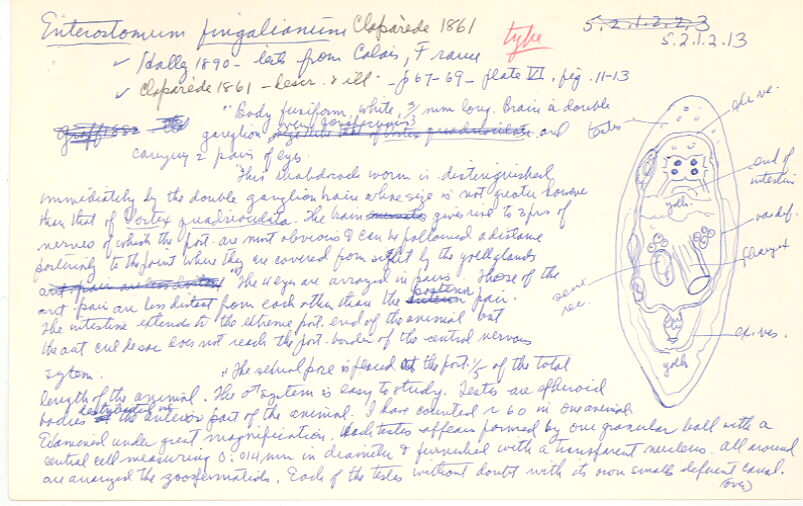 Enterostomum fingalianum Claparède 1861
type
5.2.1.2.2.3
5.2.1.2.13
✓ Hallez 1890 - lists from Calais, France
✓ Claparède 1861 - descr. & ill. - p 67-69 - plate VI, fig. 11-13
"Body fusiform, white, 2/3 mm long. Brain a double
Graff 1882
ganglion, and
carrying 2 pairs of eyes.
This rhabdocoel worm is distinguished
immediately by the double ganglion brain whose size is not greater however
than that of Vortex quadrioculata. The brain gives rise to 2 prs of
nerves of which the post. are most obvious & can be followed a distance
posteriorly to the point where they are covered from sight by the yolk glands
ant. pair are less distant "The 4 eyes are arranged in pairs. Those of the
ant pair are less distant from each other than the posterior pair.
The intestine extends to the extreme post. end of the animal but
the ant cul de sac does not reach the post. border of the central nervous
system. "The sexual pore is placed at the post. 1/5 of the total
length of the animal. The ♂ system is easy to study. Testes are spheroid
bodies distributed in the anterior part of the animal. I have counted ~ 60 in one animal
examined under great magnification. Each testes appears formed by one granular ball with a
central cell measuring 0.014 mm in diameter & furnished with a transparent nucleus. All around
are arranged the zoospermatids. Each of the testes without doubt with its own small deferent canal.
(over)
testes
end of
intestine
yolk
vas def.
pharynx
sem
rec.
yolk